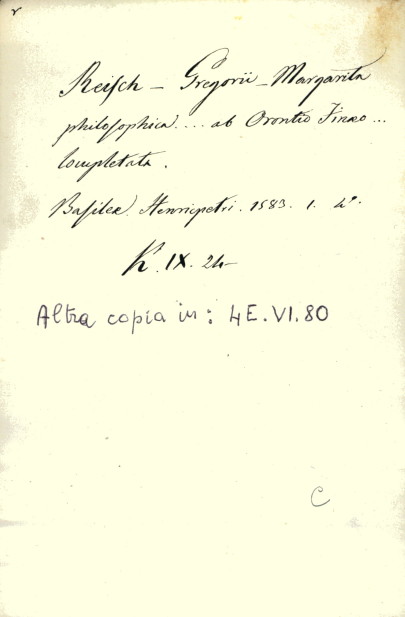 r
Reisch — Gregorii — Margarita
philosophica .... ab Orontio Fineo ...
completata.
Basileæ. Henricpetri. 1583. 1. 4º.
K. IX. 24
Altra copia in: 4E.VI.80
C